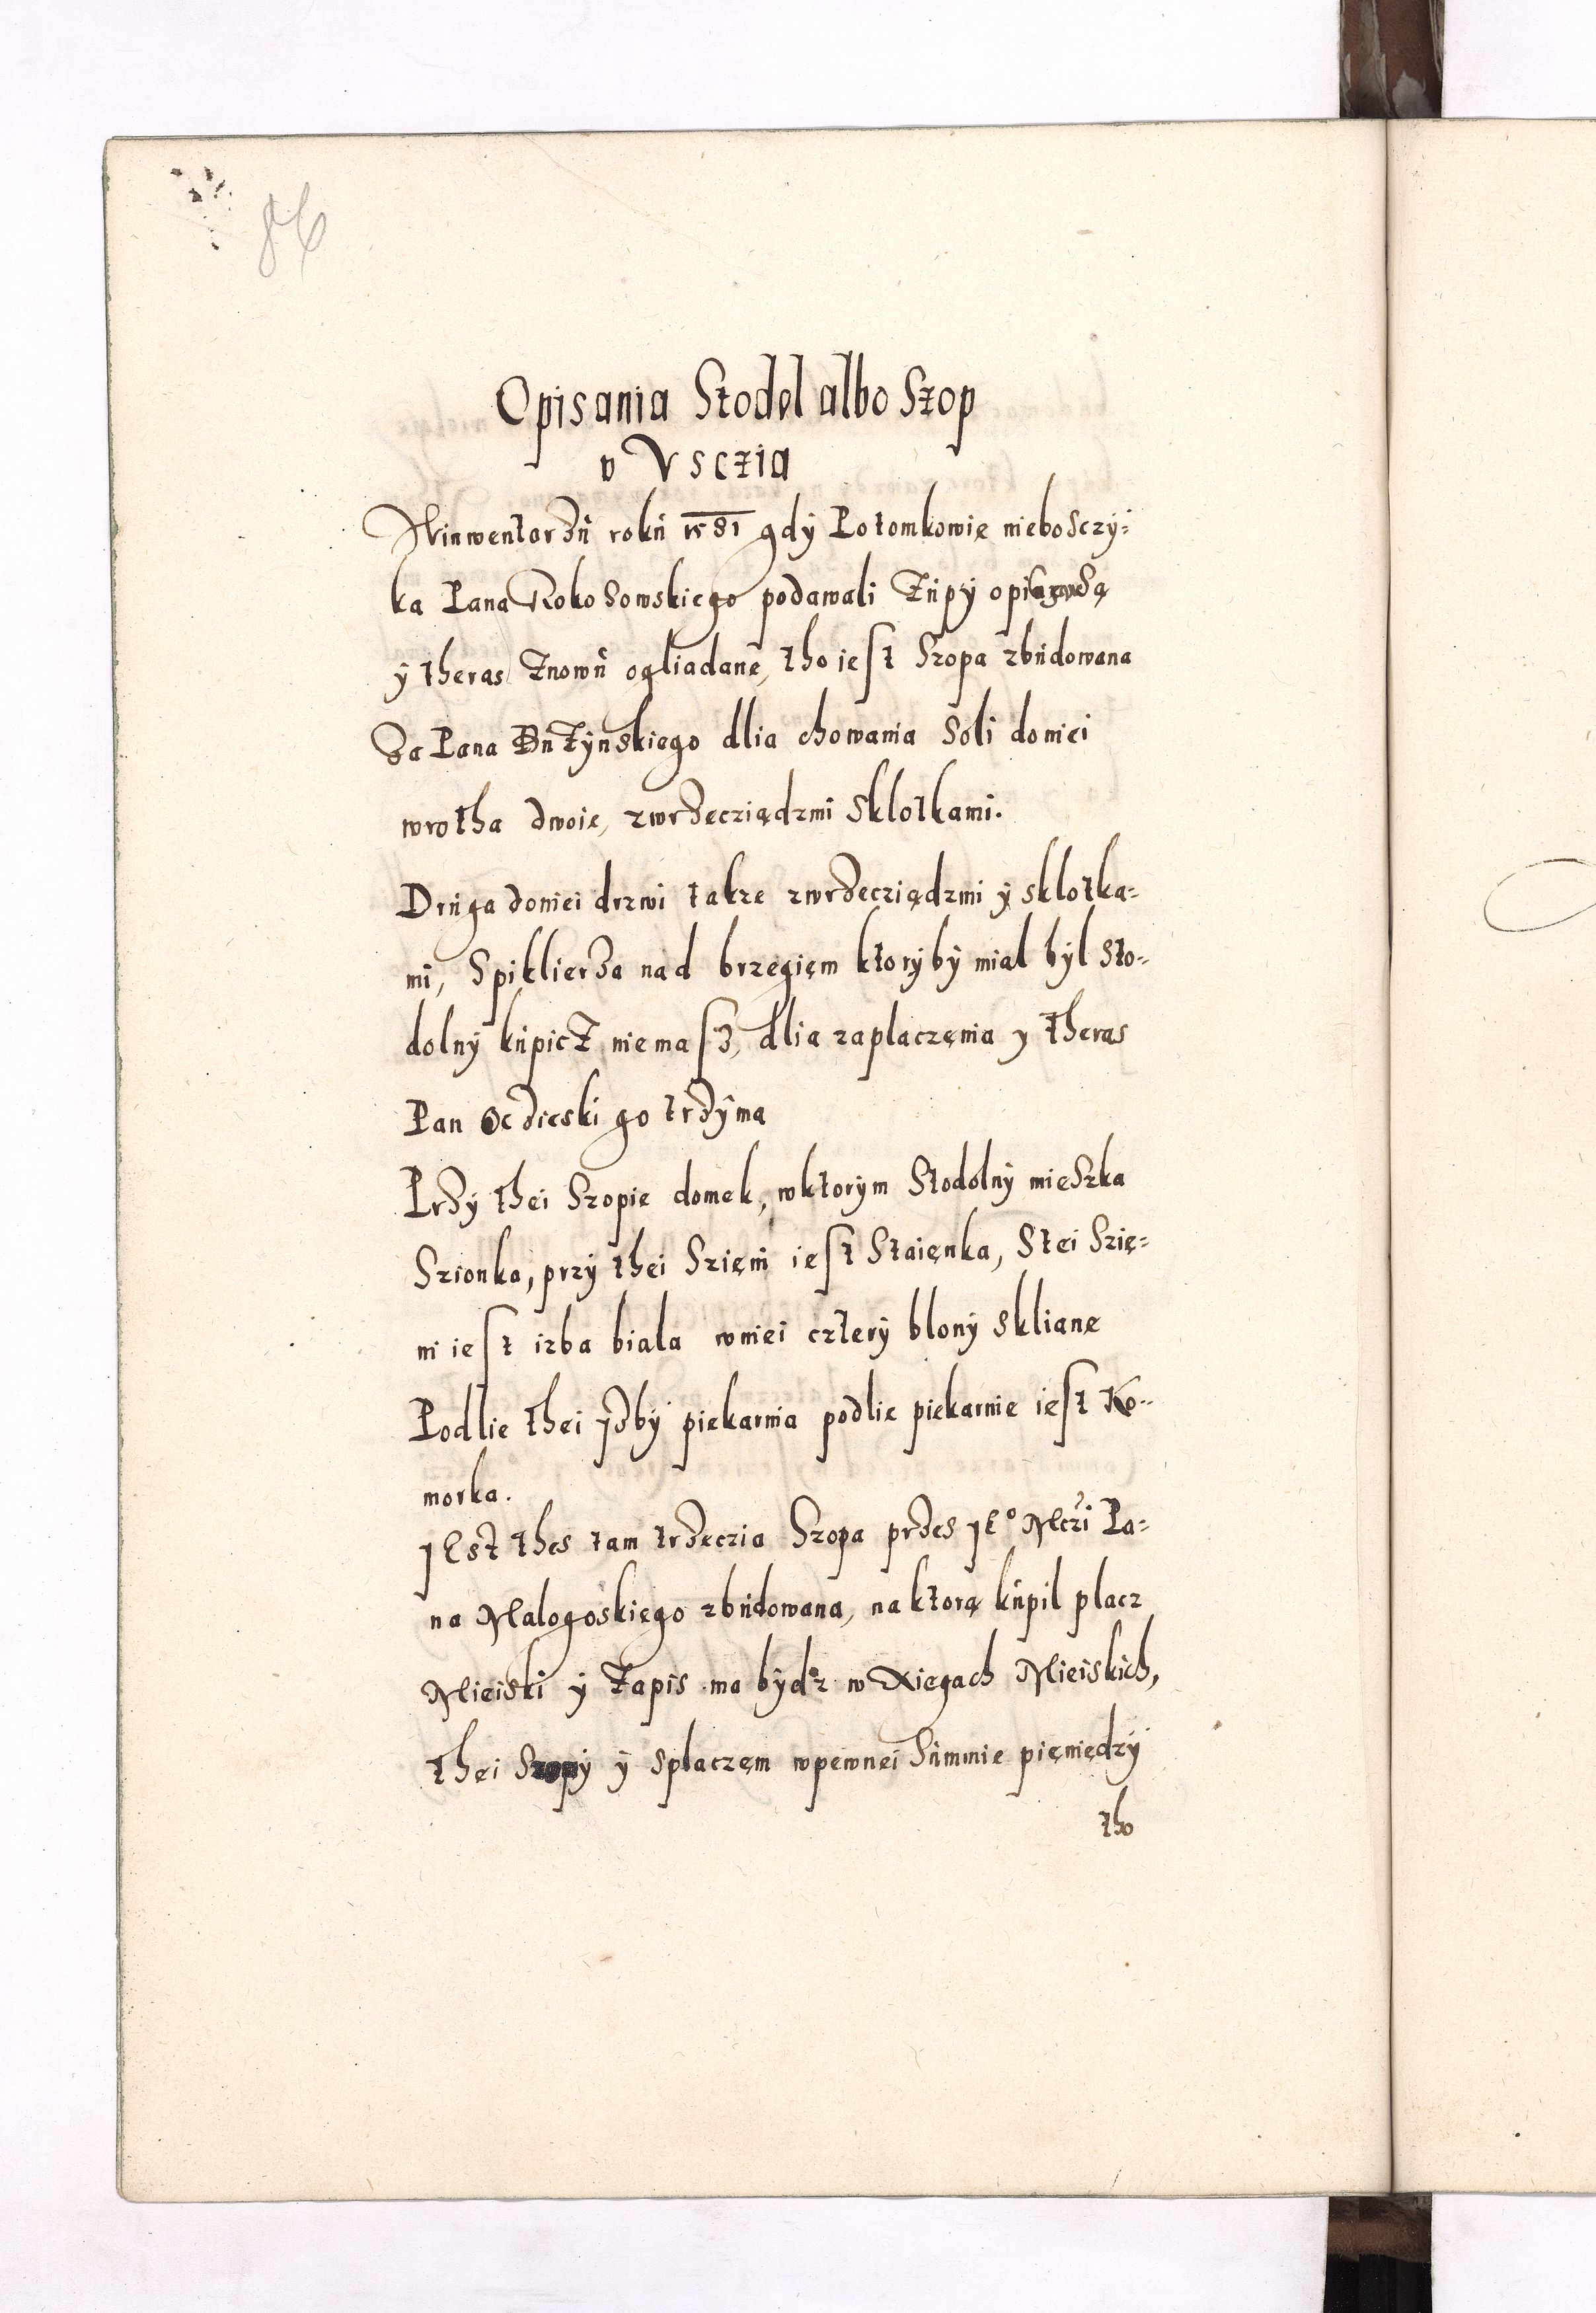 86
Opisania Stodel albo Szop
v Vsczia
Winwentarzu roku 1581 gdÿ Potomkowie nieboscZÿ=
ka Pana Rokosowskiego podawali Zupÿ opisane są
ÿ theras Znowu ogliadane, tho iest Szopa zbudowana
Za Pana BuZÿnskiego dlia chowania Soli doniei
wrotha dwoie, zwrzecziądzmi Sklotkami.
Druga doniei drzwi takze zwrzecziądzmi ÿ sklotka=
mi, Spiklierza nad brzegięm ktorÿ bÿ mial bÿl Sto=
dolnÿ kupicZ niemasz, dlia zaplaczęnia y theras
Pan Ocieski go trzÿma
Przÿ thei Szopie domek, wktorym Stodolnÿ mieszka
Szionka, przÿ thei Szięni iest Staięnka, Stei Szię=
ni iest izba biala wniei czterÿ blonÿ skliane
Podlie thei Jzbÿ piekarnia podlie piekarnie iest Ko=
morka.
JEst thes tam trzeczia Szopa przes JEº Mczi Pa=
na Malogoskiego zbudowana, na ktorą kupil placz
Mieiski ÿ Zapis ma bÿdz w Xięgach Mieiskich,
thei Szopÿ ÿ splaczęm wpewnei Summie pięniędzÿ
tho